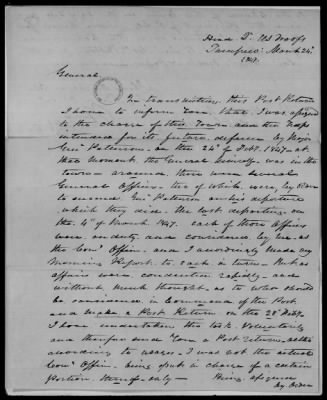 Head Qr. U.S. Troops
Tampico: March 24th
1847.
General
In transmitting this Post Return
I have to inform You, that I was assigned
to the charge of this Town and the Troops
intended for its future defence by Major
Genl Patterson, on the 24th of Feby. 1847. at
that moment, the General himself was in the
town – around, there were several
General Officers, two of which, were, by Order
to succeed Genl Patterson on his departure
which they did. The last departing on
the 4th of March 1847. each of those Officers
were on duty and considered by me, as
the Comg Officer, and I accordingly made my
Morning Report to each in turn – But as
affairs were conducted rapidly – and
without much thought as to who should
be considered in Command of the Post
and make a Post Return on the 28th Feby.
I have undertaken the task voluntarily
and therefore send You a Post return,
according to usage. I was not the actual
Comg Officer, being put in charge of a certain
portion thereof only – Being assigned
by Order